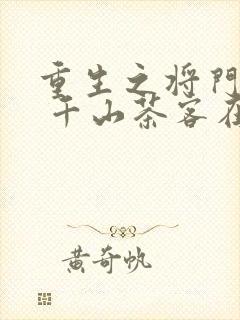 重生之将門
千山茶客在
黄奇帆